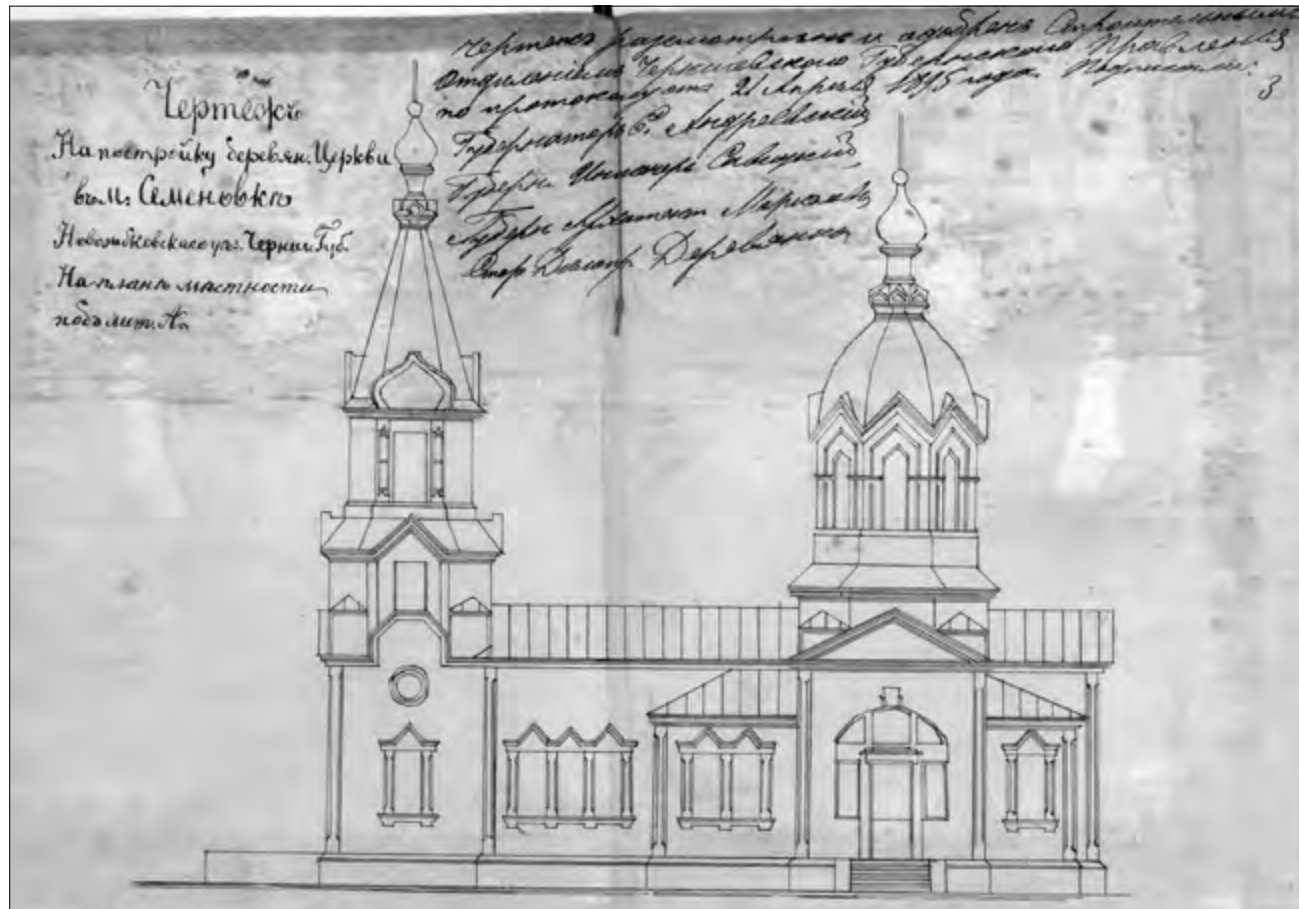 Чертежъ
На постройку деревян. Церкви
въ м. Семеновкѣ
Новозыбковскаго уѣз. Черниг. Губ.
На планѣ мѣстности
подъ лит. А.
Чертежъ разсмотренъ и одобренъ Строительнымъ
Отдѣленіемъ Черниговскаго Губернскаго Правленія
по протоколу отъ 21 Апрѣля 1895 года. Подписали:
3
Губернаторъ Е. Андреевскій
Губерн. Инженеръ Савицкій
Губерн. Архитект.
Деревянко